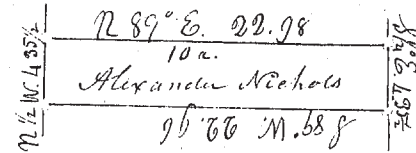 N 89° E. 22.98
10 a.
Alexander Nichols
S 89° W. 22.96
N ½ W. 4.35½
S ½° E 4.35½